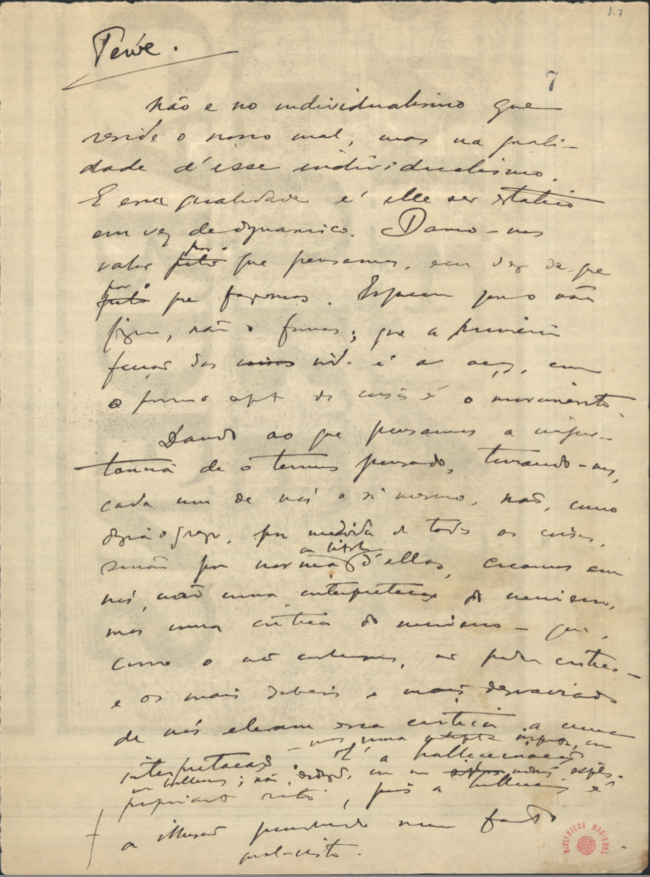 Teive.
7
Não é no individualismo que
reside o nosso mal, mas na quali-
dade d'esse individualismo.
E essa qualidade é elle ser statico
em vez de dynamico. Damo-nos
valor por o que pensamos, em vez de que
por o que fazemos. Esquecemos que não
fizemos, não o fomos; que a primeira
função da vida é a acção, como
o primeiro aspecto das coisas é o movimento.
Dando ao que pensamos a impor-
tancia de o termos pensado, tomando-nos,
cada um de nós a si mesmo, não, como
dizia o grego, por medida de todas as cousas,
senão por norma ou bitola d'ellas, creamos em
nós, não uma interpretação do universo,
mas uma critica do universo — que,
como o não conhecemos, não podemos criticar —
e os mais debeis e mais desvairados
de nós elevam essa critica a uma
interpretação — mas uma imposta, como
É a hallucinação
propriamente dita, pois a hallucinação é
a illusão num facto
mal-visto.
BIBLIOTECA NACIONAL